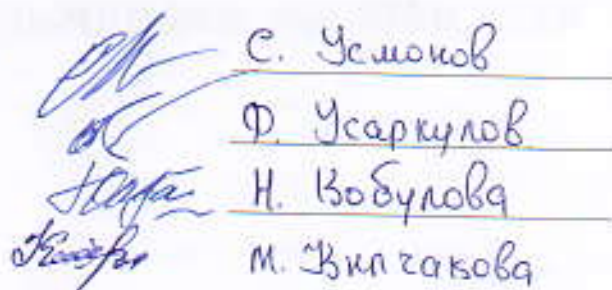 С. Усмонов
Ф. Усаркулов
Н. Бобулова
М. Кипчакова